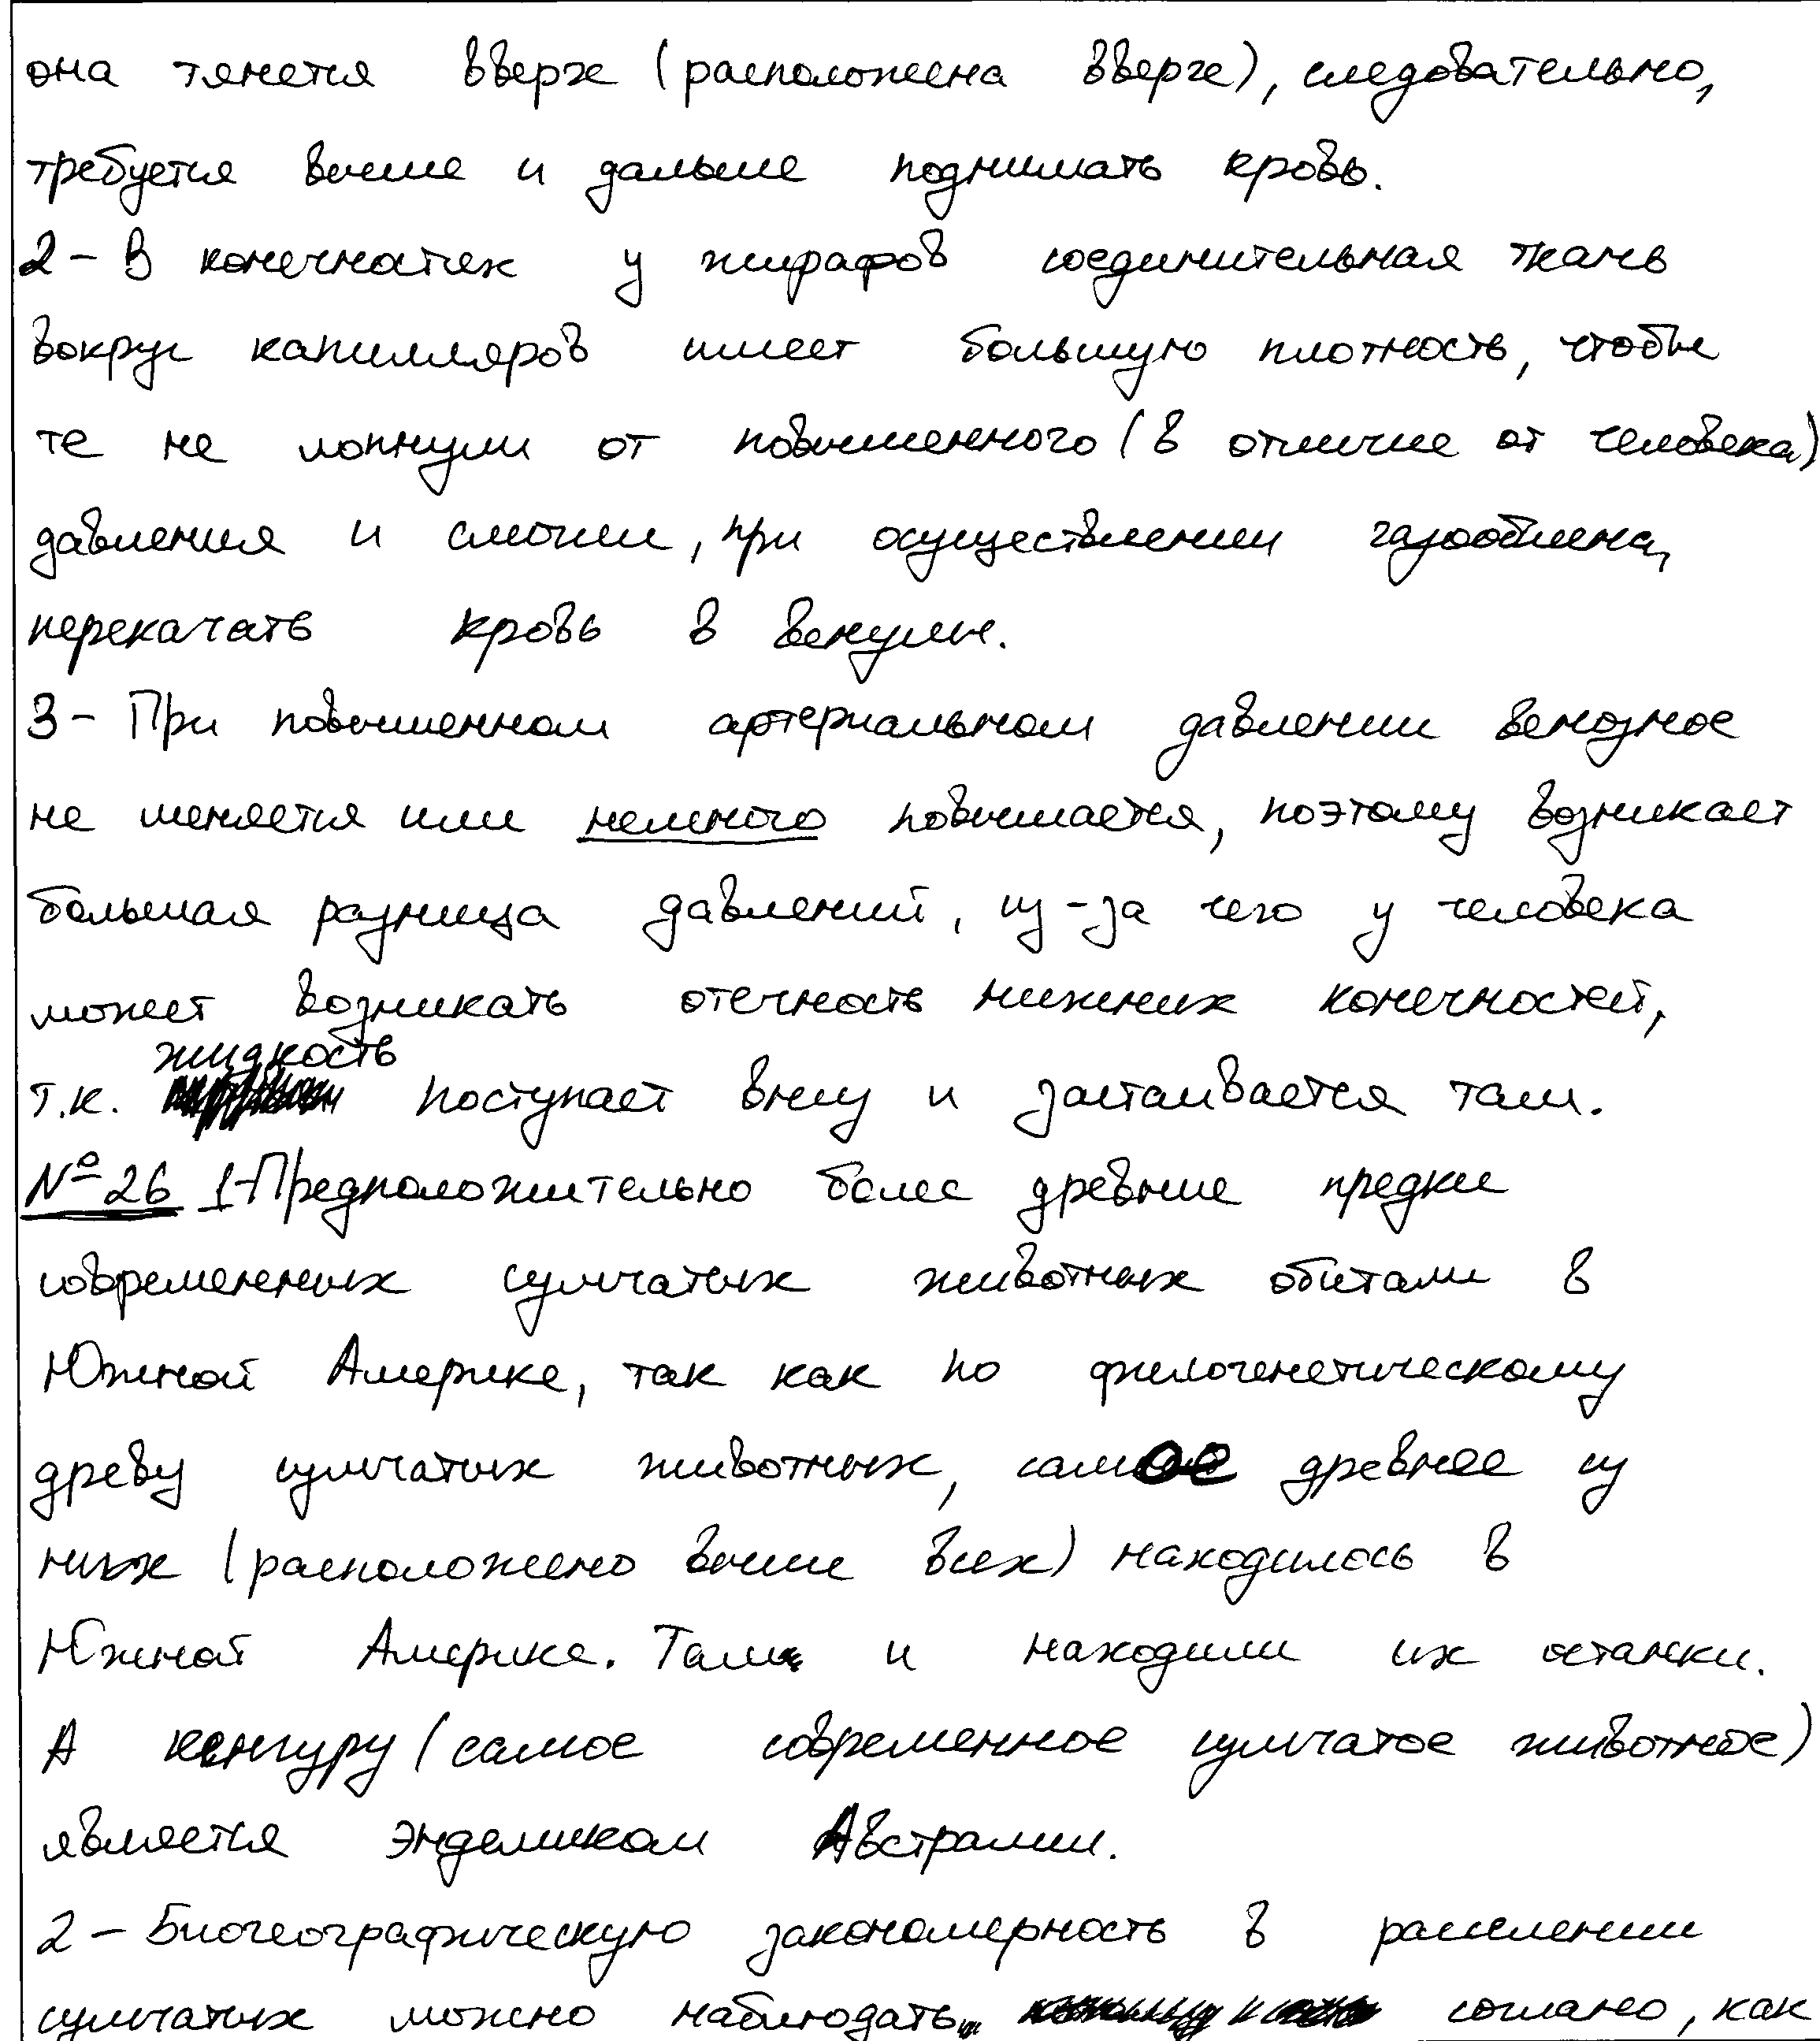 она тянется вверх (расположена вверх), следовательно,
требуется выше и дальше поднимать кровь.
2 - В конечностях у жирафов соединительная ткань
вокруг капилляров имеет большую плотность, чтобы
те не лопнули от повышенного (в отличие от человека)
давления и смогли, при осуществлении газообмена,
перекачать кровь в венулы.
3 - При повышенном артериальном давлении венозное
не меняется или немного повышается, поэтому возникает
большая разница давлений, из-за чего у человека
может возникать отечность нижних конечностей,
т.к. жидкость поступает вниз и застаивается там.
№26 1-Предположительно более древние предки
современных сумчатых животных обитали в
Южной Америке, так как по филогенетическому
древу сумчатых животных, самое древнее из
них (расположено выше всех) находилось в
Южной Америке. Там и находили их останки.
А кенгуру (самое современное сумчатое животное)
является эндемиком Австралии.
2 - Биогеографическую закономерность в расселении
сумчатых можно наблюдать согласно, как